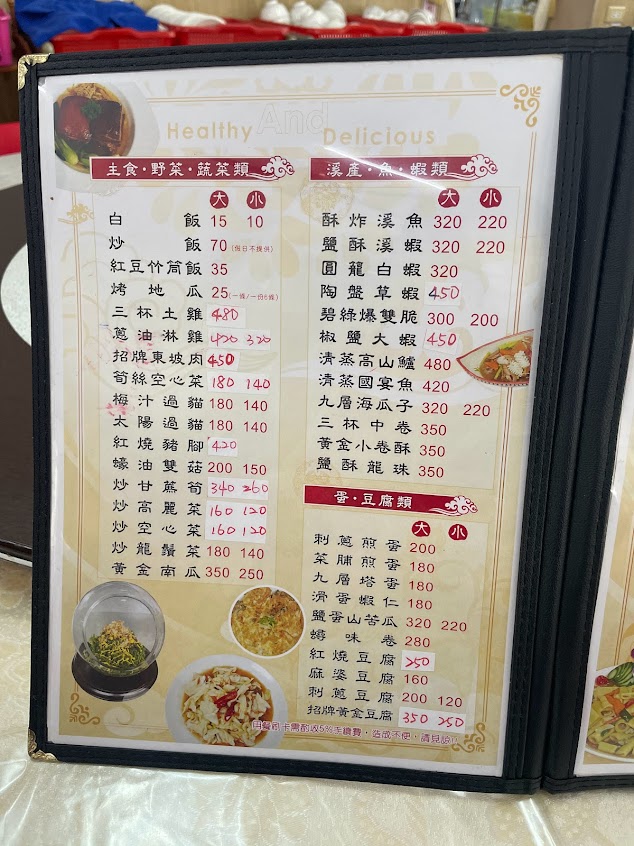 Healthy And Delicious
主食・野菜・蔬菜類
大 小
白飯 15 10
炒飯 70 (假日不提供)
紅豆竹筒飯 35
烤地瓜 25 (一條/一份6條)
三杯土雞 480
蔥油淋雞 420 320
招牌東坡肉 450
筍絲空心菜 180 140
梅汁過貓 180 140
太陽過貓 180 140
紅燒豬腳 420
蠔油雙菇 200 150
炒甘蔗筍 340 260
炒高麗菜 160 120
炒空心菜 160 120
炒龍鬚菜 180 140
黃金南瓜 350 250
溪產・魚・蝦類
大 小
酥炸溪魚 320 220
鹽酥溪蝦 320 220
圓籠白蝦 320
陶盤草蝦 450
碧綠爆雙脆 300 200
椒鹽大蝦 450
清蒸高山鱸 480
清蒸國宴魚 420
九層海瓜子 320 220
三杯中卷 350
黃金小卷酥 350
鹽酥龍珠 350
蛋・豆腐類
大 小
刺蔥煎蛋 200
菜脯煎蛋 180
九層塔蛋 180
滑蛋蝦仁 180
鹽蛋山苦瓜 320 220
蟳味卷 280
紅燒豆腐 250
麻婆豆腐 160
刺蔥豆腐 200 120
招牌黃金豆腐 350 250
用餐刷卡需酌收5%手續費，造成不便，請見諒!!